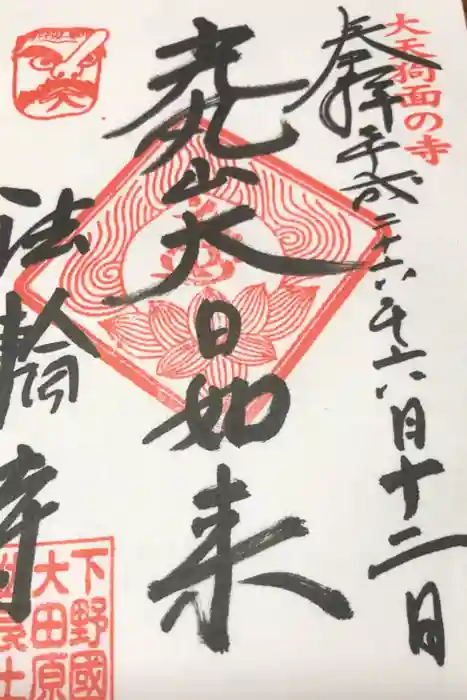 大天狗面の寺
奉拝 平成二十六年六月十二日
光丸山大日如来
法輪寺
下野國
大田原
佐良土